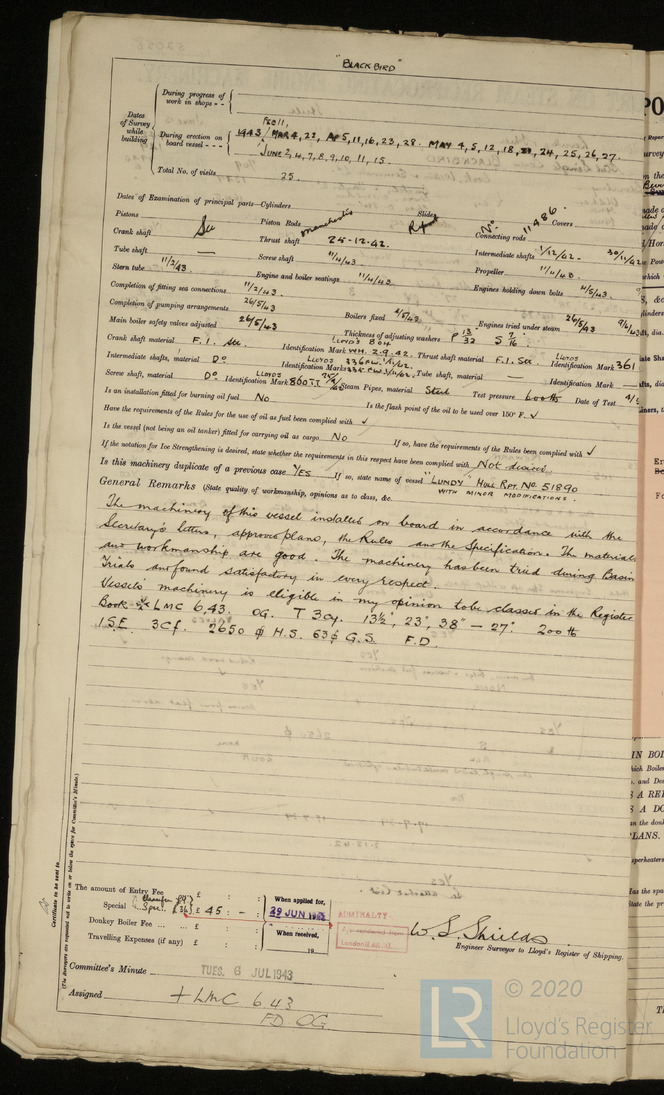 "BLACKBIRD"
During progress of work in shops - -
Dates of Survey while building
During erection on board vessel - - -
FEB 11,
1943 / MAR 4, 22, AP 5, 11, 16, 23, 28. MAY 4, 5, 12, 18, 24, 25, 26, 27.
JUNE 2, 4, 7, 8, 9, 10, 11, 15.
Total No. of visits 25.
Dates of Examination of principal parts—Cylinders Slides
Pistons See Piston Rods Manchester's Report No 11486 Covers
Crank shaft Thrust shaft 25-12-42. Connecting rods
Tube shaft — Screw shaft 11/4/43 Intermediate shafts 1/12/42 - 30/11/42
Stern tube 11/2/43 Engine and boiler seatings 11/4/43 Propeller 11/4/43.
Completion of fitting sea connections 11/2/43. Engines holding down bolts 4/5/43.
Completion of pumping arrangements 26/5/43 Boilers fixed 4/5/43. Engines tried under steam 26/5/43 9/6/43
Main boiler safety valves adjusted 26/5/43 Thickness of adjusting washers P 13/32 S 7/16.
Crank shaft material F.I. See. Identification Mark LLOYD'S 804 W.H. 2.9.42. Thrust shaft material F.I. See. Identification Mark LLOYDS 361
Intermediate shafts, material Do Identification Marks LLOYDS Tube shaft, material — Identification Mark —
Screw shaft, material Do Identification Mark LLOYDS Steam Pipes, material Steel Test pressure 600 lb Date of Test
Is an installation fitted for burning oil fuel No Is the flash point of the oil to be used over 150° F. ✓
Have the requirements of the Rules for the use of oil as fuel been complied with ✓
Is the vessel (not being an oil tanker) fitted for carrying oil as cargo. No If so, have the requirements of the Rules been complied with ✓
If the notation for Ice Strengthening is desired, state whether the requirements in this respect have been complied with Not desired.
Is this machinery duplicate of a previous case YES If so, state name of vessel "LUNDY" HULL RPT. NO. 51890
WITH MINOR MODIFICATIONS.
General Remarks (State quality of workmanship, opinions as to class, &c.
The machinery of this vessel installed on board in accordance with the
Secretary's letters, approved plans, the Rules and the Specification. The material
and workmanship are good. The machinery has been tried during Basin
Trials and found satisfactory in every respect.
Vessel's machinery is eligible in my opinion to be classed in the Register
Book LMC 6,43. OG. T 3Cy. 13½", 23", 38" — 27". 200 lb
1SE 3Cf. 2650 ф H.S. 63 ф G.S. F.D.
Certificate to be sent to
(The Surveyors are requested not to write on or below the space for Committee's Minute.)
The amount of Entry Fee £ : : When applied for,
Special £ 45 : - : 29 JUN 1943
Donkey Boiler Fee £ : : When received,
Travelling Expenses (if any) £ : : 19
ADMIRALTY.
W. S. Shields
Engineer Surveyor to Lloyd's Register of Shipping.
Committee's Minute TUES. 6 JUL 1943
Assigned + LMC 6 43
FD OG
LR © 2020
Lloyd's Register
Foundation